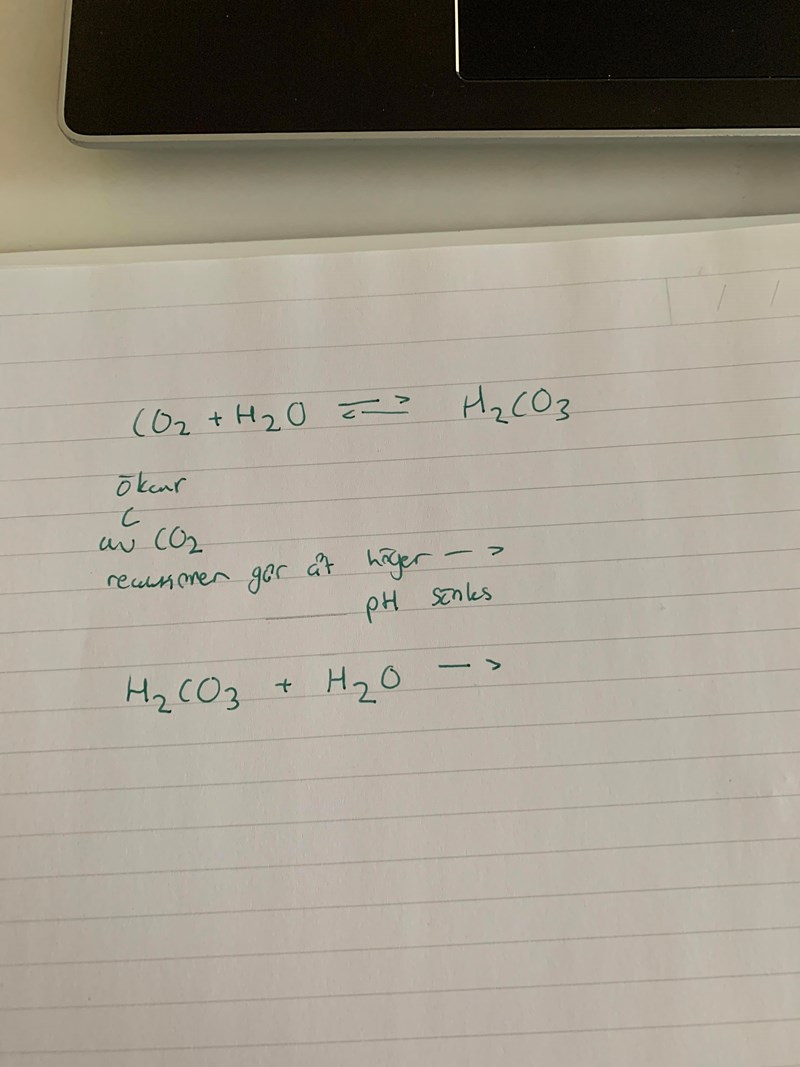 CO2 + H2O ⇌ H2CO3
ökar
C
av CO2
reaktionen går åt höger —>
pH sänks
H2CO3 + H2O —>